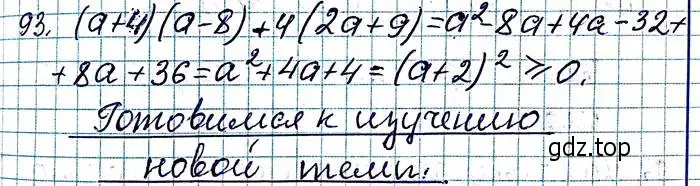 93. (a+4)(a-8)+4(2a+9)=a²-8a+4a-32+
+8a+36=a²+4a+4=(a+2)²⩾0.
Готовимся к изучению
новой темы.
gdz.top